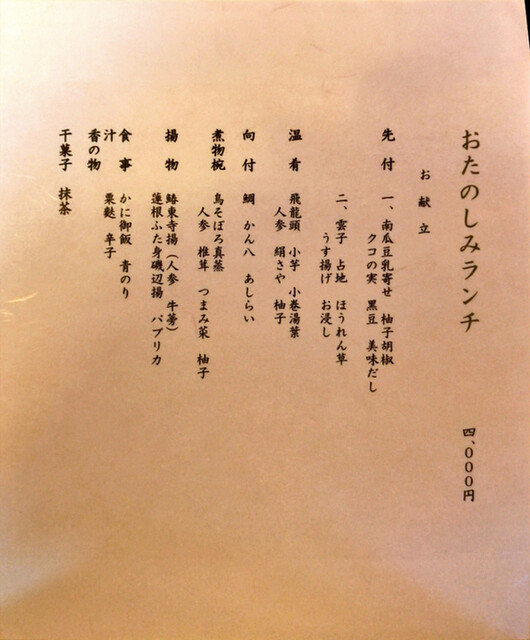 おたのしみランチ 四、〇〇〇円
お献立
先付 一、南瓜豆乳寄せ 柚子胡椒
クコの実 黒豆 美味だし
二、雲子 占地 ほうれん草
うす揚げ お浸し
温肴 飛龍頭 小芋 小巻湯葉
人参 絹さや 柚子
向付 鯛 かん八 あしらい
煮物椀 鳥そぼろ真蒸
人参 椎茸 つまみ菜 柚子
揚物 鰆東寺揚(人参 牛蒡)
蓮根ふた身磯辺揚 パプリカ
食事 かに御飯 青のり
汁 粟麩 辛子
香の物
干菓子 抹茶